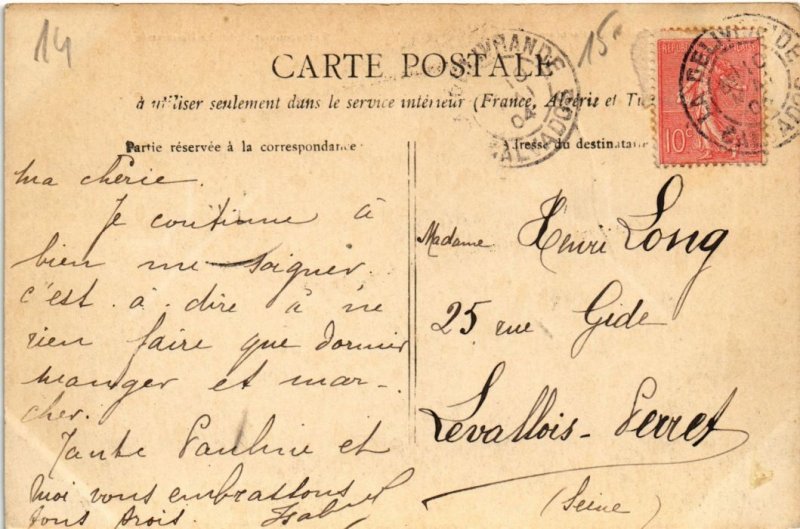 14
15
CARTE POSTALE
à utiliser seulement dans le service intérieur (France, Algérie et Tu
Partie réservée à la correspondance
Adresse du destinataire
LA DELIVRANDE
04
CALVADOS
LA DELIVRANDE
CALVADOS
10c
ma chérie.
Je continue à
bien me soigner.
c'est. à. dire à ne
rien faire que dormir
manger et mar-
cher.
Tante Pauline et
moi vous embrassons
tous trois.
Madame Henri Long
25 rue Gide
Levallois-Perret
(Seine)